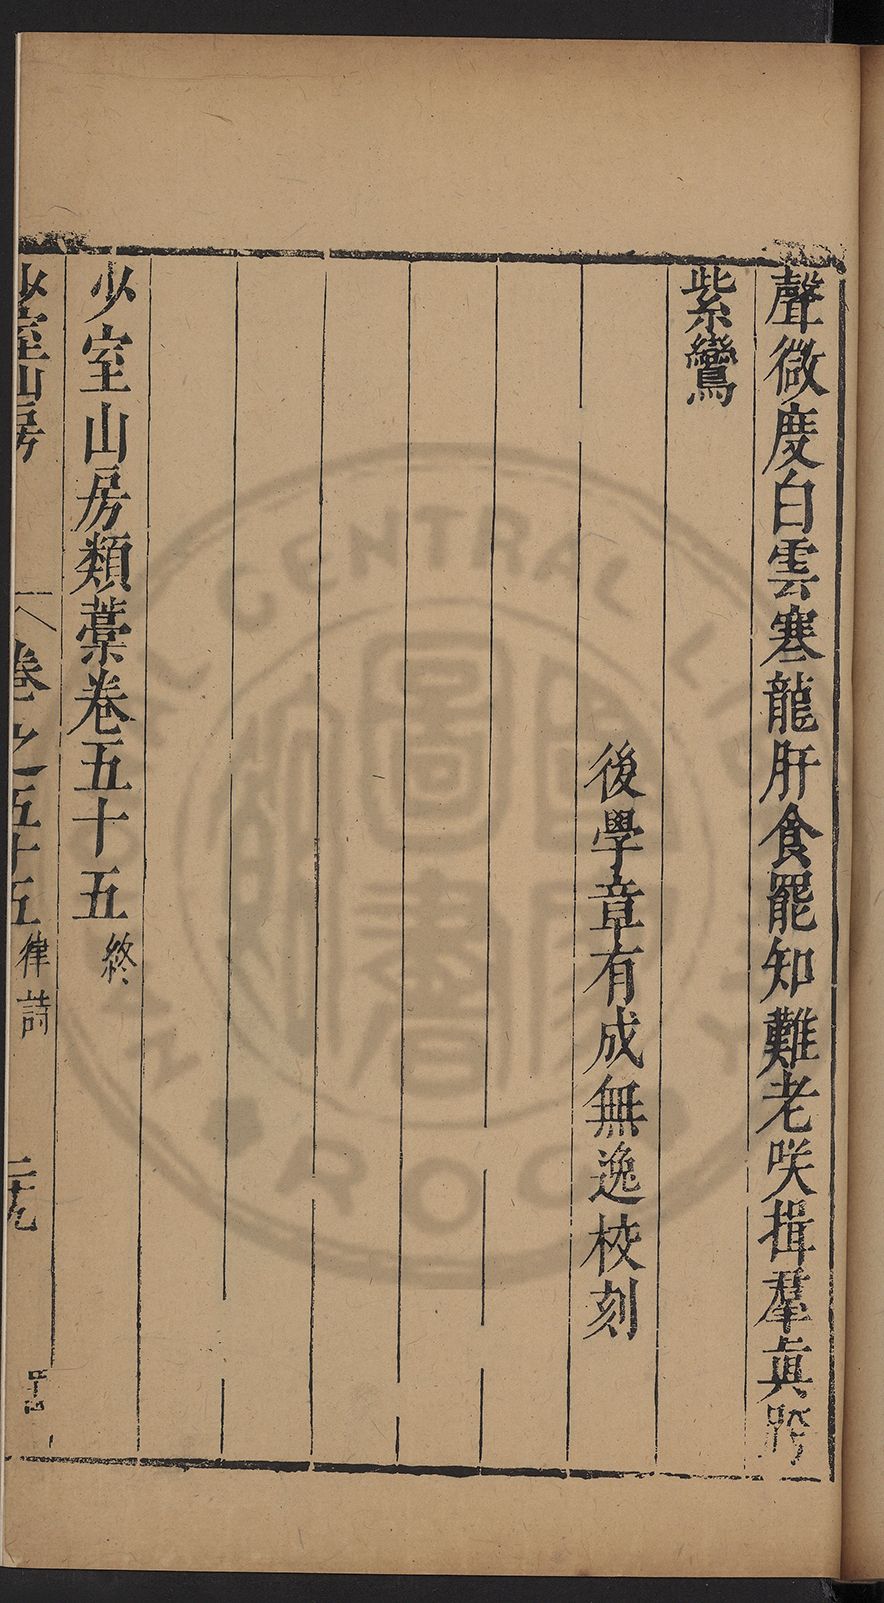 聲微度白雲寒龍肝食罷知難老咲揖羣真跨
紫鸞
後學章有成無逸校刻
少室山房類藁卷五十五終
少室山房 卷之五十五律詩 二十九